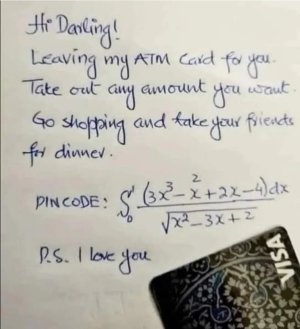 Hi Darling!
Leaving my ATM card for you.
Take out any amount you want.
Go shopping and take your friends
for dinner.
PINCODE: ∫₀¹ (3x³-x²+2x-4)dx / √(x²-3x+2)
P.S. I love you
VISA